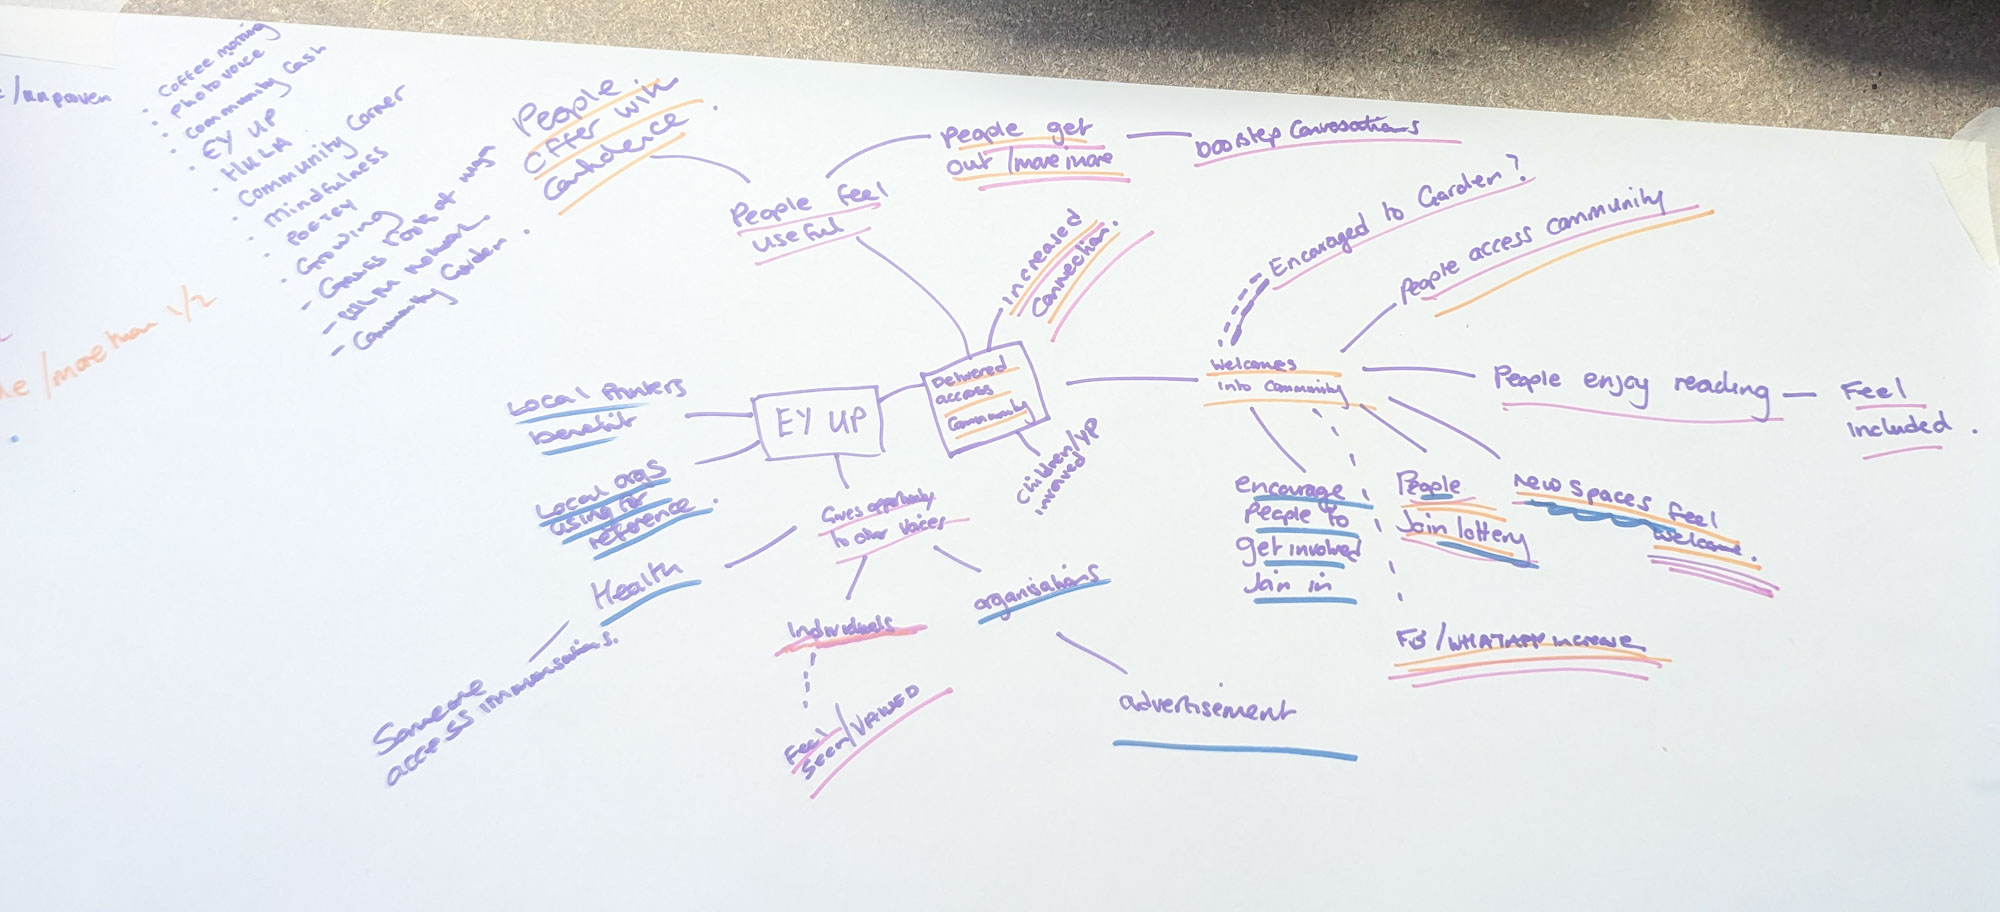 /unproven
. Coffee morning
. Photo voice
. Community Cash
. EY UP
. HKLM
. Community Corner
. Mindfulness
. POETRY
. Growing
- Games
- network
- Community Garden.
/more than 1/2
People
offer with
confidence.
People feel
useful
People get
out /move more
Doorstep Conversations
increased
Connection.
Encouraged to Garden?
People access community
Local Printers
benefit
EY UP
Delivered
across
Community
Children/YP
involved
Welcomes
into Community
People enjoy reading
Feel
included.
Local orgs
using for
reference.
Gives opportunity
to other Voices
Health
Someone
access immunisations.
Individuals
Feel
Seen/VALUED
organisations
advertisement
encourage
people to
get involved
Join in
People
Join lottery
New spaces feel
Welcome.
FB/WHATAPP increase